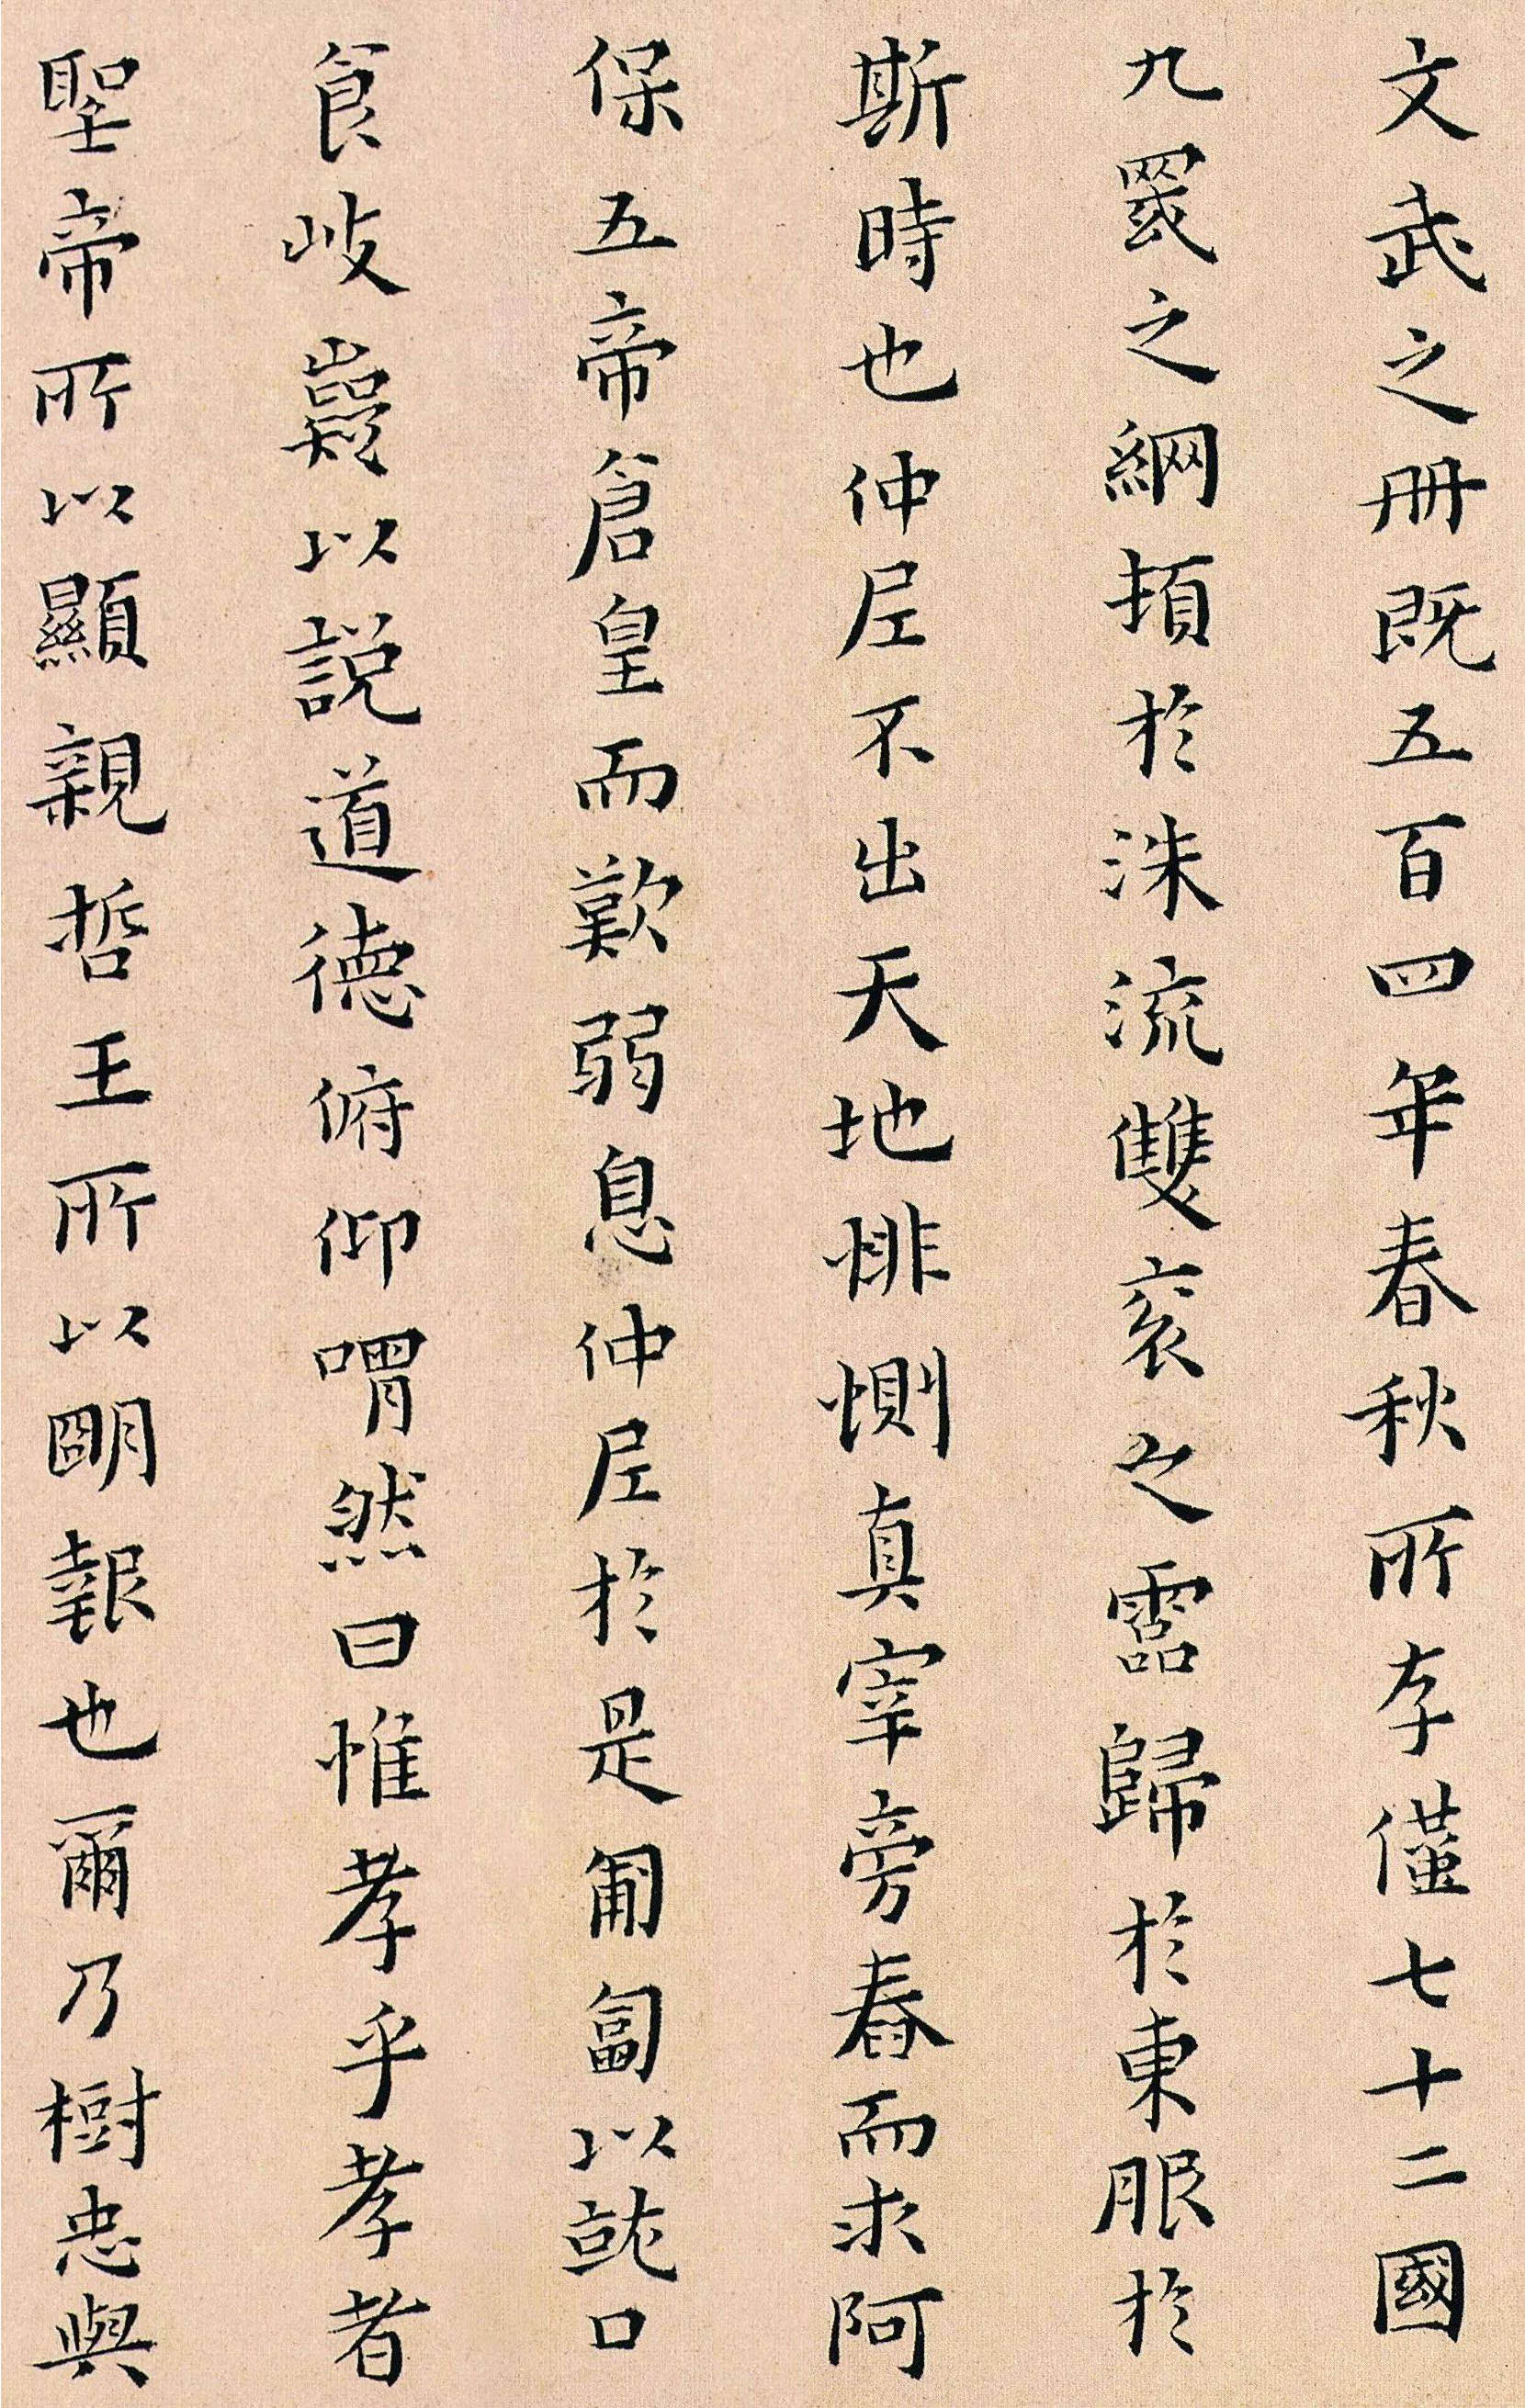 文武之册既五百四年春秋所存僅七十二國
九罭之綱頓於洙流雙衮之霝歸於東服於
斯時也仲𡰥不出天地悱惻真宰旁舂而求阿
保五帝倉皇而歎弱息仲𡰥於是匍匐以就口
食岐嶷以説道德俯仰喟然曰惟孝乎孝者
聖帝所以顯親哲王所以朙報也爾乃樹忠與